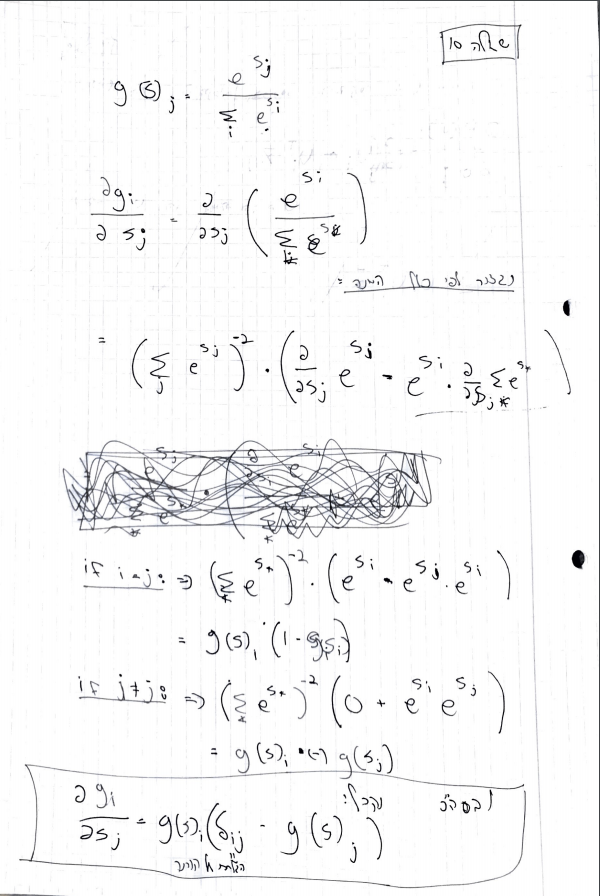 שאלה 10
g(s)_j = e^{s_j} / Σ_i e^{s_i}
∂g_i / ∂s_j = ∂/∂s_j ( e^{s_i} / Σ_* e^{s_*} )
לפי כלל המנה =
= ( Σ_j e^{s_j} )^{-2} · ( ∂/∂s_j e^{s_j} - e^{s_i} · ∂/∂s_j Σ_* e^{s_*} )
if i=j: ⇒ ( Σ_* e^{s_*} )^{-2} · ( e^{s_i} - e^{s_j} · e^{s_i} )
= g(s)_i · (1 - g(s_i))
if j≠j: ⇒ ( Σ_* e^{s_*} )^{-2} ( 0 + e^{s_i} e^{s_j} )
= g(s)_i · (-) g(s_j)
ובסה"כ נקבל:
∂g_i / ∂s_j = g(s)_i ( δ_{ij} - g(s)_j )